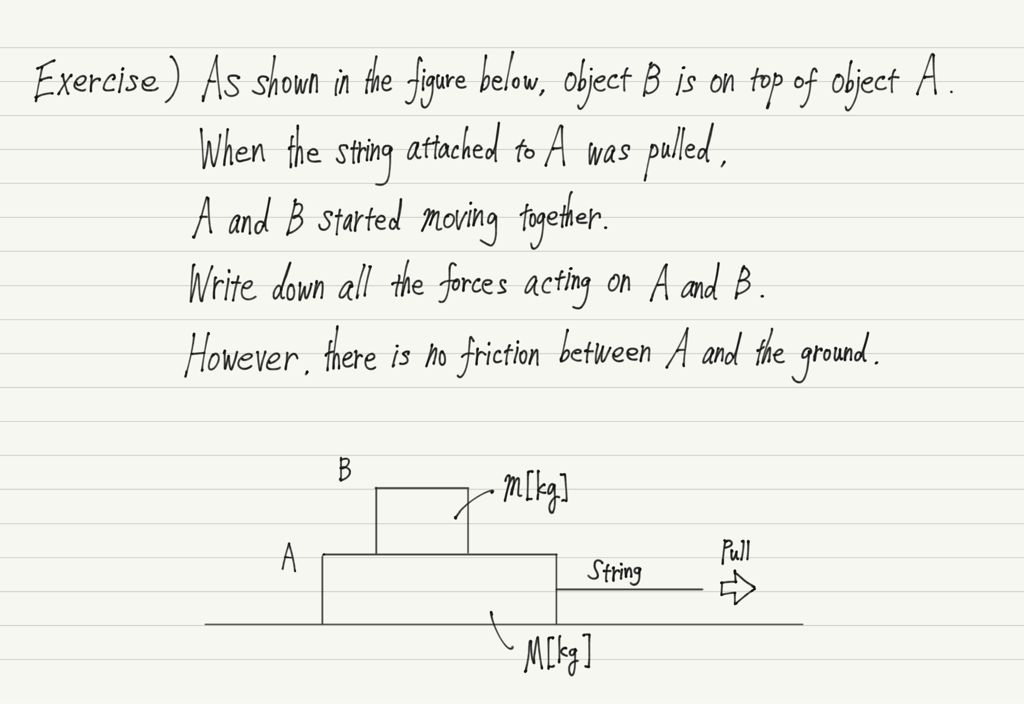 Exercise) As shown in the figure below, object B is on top of object A.
When the string attached to A was pulled,
A and B started moving together.
Write down all the forces acting on A and B.
However, there is no friction between A and the ground.
B
m[kg]
A
String
Pull
M[kg]